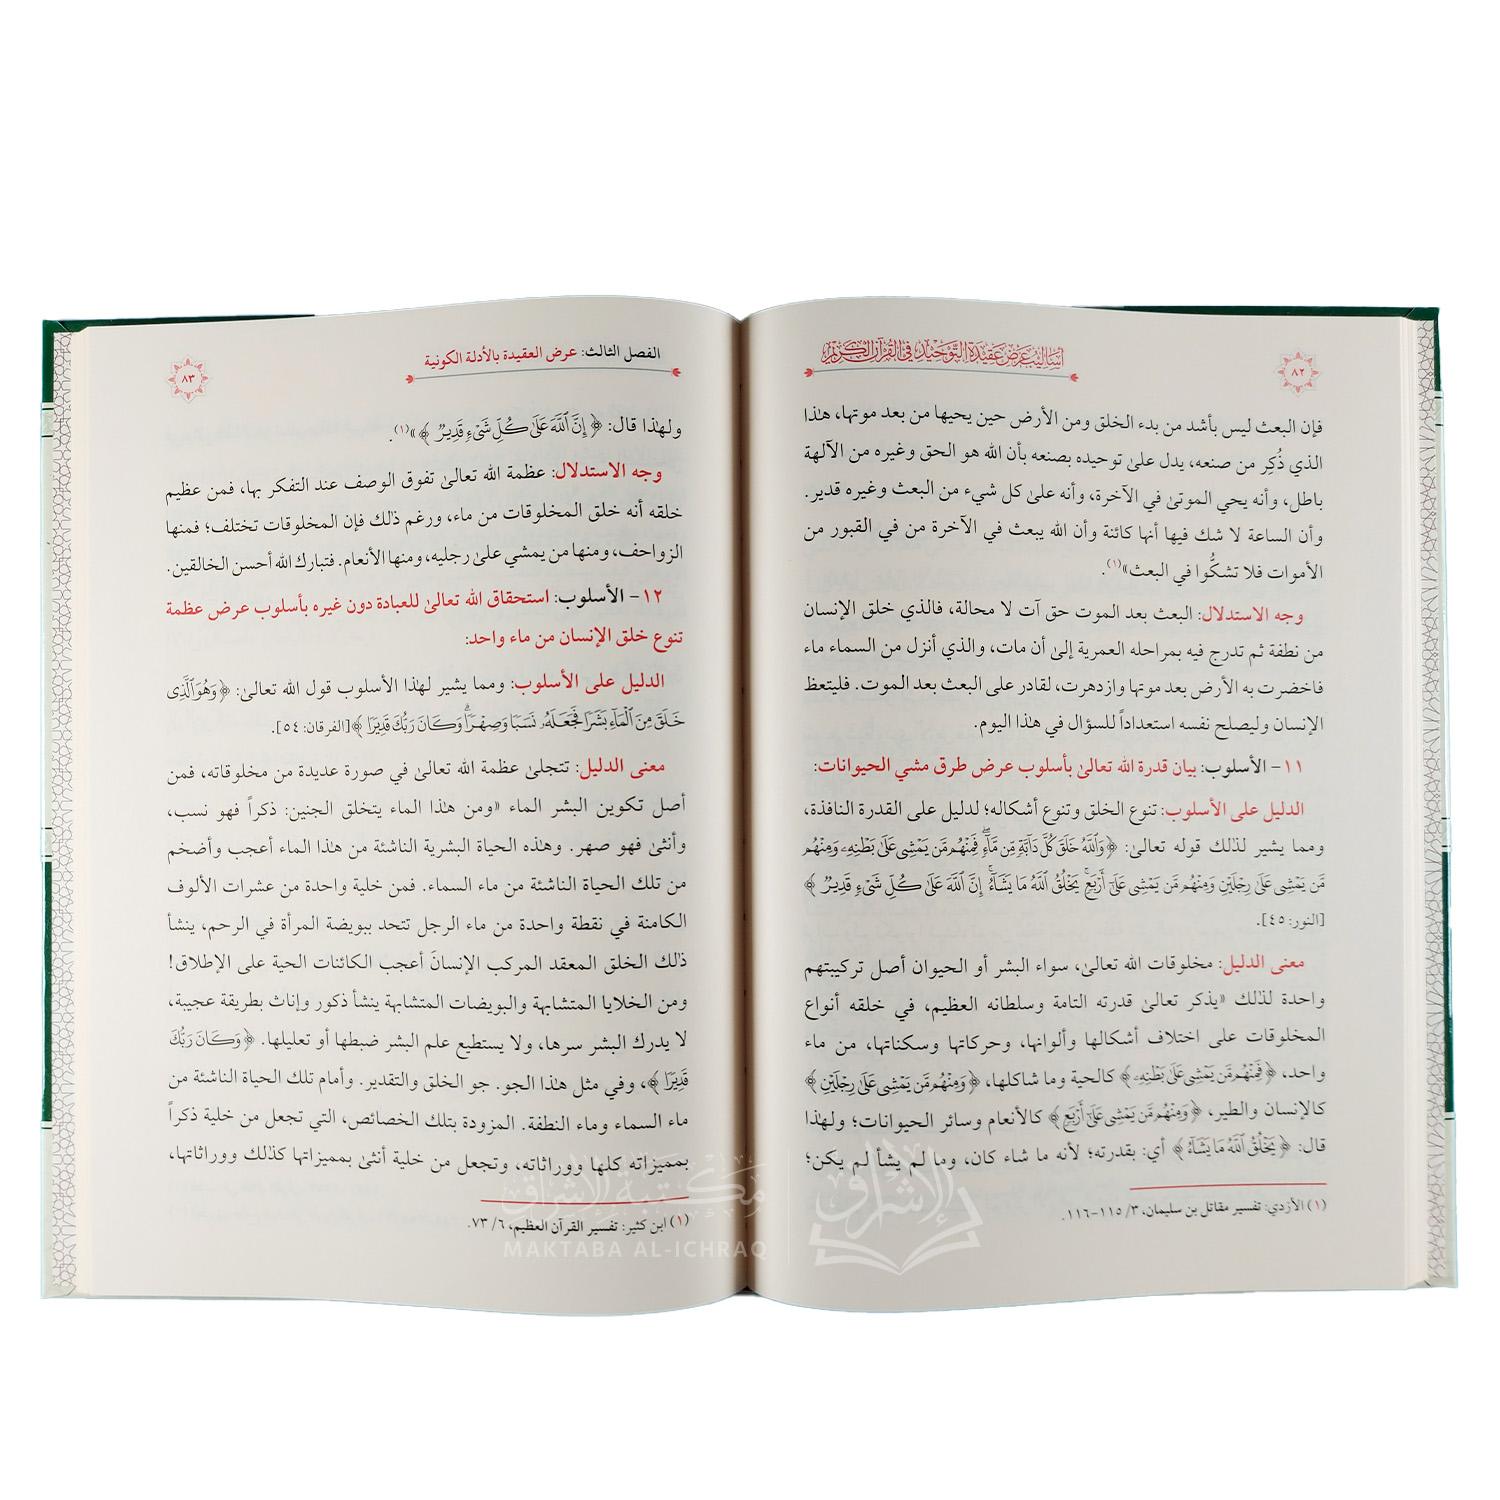 ٨٢
أساليب عرض عقيدة التوحيد في القرآن الكريم
فإن البعث ليس بأشد من بدء الخلق ومن الأرض حين يحيها من بعد موتها، هٰذا
الذي ذُكِر من صنعه، يدل علىٰ توحيده بصنعه بأن الله هو الحق وغيره من الآلهة
باطل، وأنه يحي الموتىٰ في الآخرة، وأنه علىٰ كل شيء من البعث وغيره قدير.
وأن الساعة لا شك فيها أنها كائنة وأن الله يبعث في الآخرة من في القبور من
الأموات فلا تشكُّوا في البعث»(١).
وجه الاستدلال: البعث بعد الموت حق آت لا محالة، فالذي خلق الإنسان
من نطفة ثم تدرج فيه بمراحله العمرية إلىٰ أن مات، والذي أنزل من السماء ماء
فاخضرت به الأرض بعد موتها وازدهرت، لقادر على البعث بعد الموت. فليتعظ
الإنسان وليصلح نفسه استعداداً للسؤال في هٰذا اليوم.
١١- الأسلوب: بيان قدرة الله تعالىٰ بأسلوب عرض طرق مشي الحيوانات:
الدليل على الأسلوب: تنوع الخلق وتنوع أشكاله؛ لدليل على القدرة النافذة،
ومما يشير لذلك قوله تعالىٰ: ﴿وَٱللَّهُ خَلَقَ كُلَّ دَآبَّةٖ مِّن مَّآءٖۖ فَمِنۡهُم مَّن يَمۡشِي عَلَىٰ بَطۡنِهِۦ وَمِنۡهُم
مَّن يَمۡشِي عَلَىٰ رِجۡلَيۡنِ وَمِنۡهُم مَّن يَمۡشِي عَلَىٰٓ أَرۡبَعٖۚ يَخۡلُقُ ٱللَّهُ مَا يَشَآءُۚ إِنَّ ٱللَّهَ عَلَىٰ كُلِّ شَيۡءٖ قَدِيرٞ ﴾
[النور: ٤٥].
معنى الدليل: مخلوقات الله تعالىٰ، سواء البشر أو الحيوان أصل تركيبتهم
واحدة لذٰلك «يذكر تعالىٰ قدرته التامة وسلطانه العظيم، في خلقه أنواع
المخلوقات على اختلاف أشكالها وألوانها، وحركاتها وسكناتها، من ماء
واحد، ﴿فَمِنۡهُم مَّن يَمۡشِي عَلَىٰ بَطۡنِهِۦ﴾ كالحية وما شاكلها، ﴿وَمِنۡهُم مَّن يَمۡشِي عَلَىٰ رِجۡلَيۡنِ﴾
كالإنسان والطير، ﴿وَمِنۡهُم مَّن يَمۡشِي عَلَىٰٓ أَرۡبَعٖ﴾ كالأنعام وسائر الحيوانات؛ ولهٰذا
قال: ﴿يَخۡلُقُ ٱللَّهُ مَا يَشَآءُ﴾ أي: بقدرته؛ لأنه ما شاء كان، وما لم يشأ لم يكن؛
(١) الأزدي: تفسير مقاتل بن سليمان، ٣/ ١١٥-١١٦.
الفصل الثالث: عرض العقيدة بالأدلة الكونية
٨٣
ولهذا قال: ﴿ إِنَّ ٱللَّهَ عَلَىٰ كُلِّ شَيۡءٖ قَدِيرٞ ﴾»(١).
وجه الاستدلال: عظمة الله تعالىٰ تفوق الوصف عند التفكر بها، فمن عظيم
خلقه أنه خلق المخلوقات من ماء، ورغم ذٰلك فإن المخلوقات تختلف؛ فمنها
الزواحف، ومنها من يمشي علىٰ رجليه، ومنها الأنعام. فتبارك الله أحسن الخالقين.
١٢- الأسلوب: استحقاق الله تعالىٰ للعبادة دون غيره بأسلوب عرض عظمة
تنوع خلق الإنسان من ماء واحد:
الدليل على الأسلوب: ومما يشير لهٰذا الأسلوب قول الله تعالىٰ: ﴿وَهُوَ ٱلَّذِي
خَلَقَ مِنَ ٱلۡمَآءِ بَشَرٗا فَجَعَلَهُۥ نَسَبٗا وَصِهۡرٗاۗ وَكَانَ رَبُّكَ قَدِيرٗا ﴾[الفرقان: ٥٤].
معنى الدليل: تتجلىٰ عظمة الله تعالىٰ في صورة عديدة من مخلوقاته، فمن
أصل تكوين البشر الماء «ومن هٰذا الماء يتخلق الجنين: ذكراً فهو نسب،
وأنثىٰ فهو صهر. وهٰذه الحياة البشرية الناشئة من هٰذا الماء أعجب وأضخم
من تلك الحياة الناشئة من ماء السماء. فمن خلية واحدة من عشرات الألوف
الكامنة في نقطة واحدة من ماء الرجل تتحد ببويضة المرأة في الرحم، ينشأ
ذٰلك الخلق المعقد المركب الإنسان أعجب الكائنات الحية على الإطلاق!
ومن الخلايا المتشابهة والبويضات المتشابهة ينشأ ذكور وإناث بطريقة عجيبة،
لا يدرك البشر سرها، ولا يستطيع علم البشر ضبطها أو تعليلها. ﴿وَكَانَ رَبُّكَ
قَدِيرٗا ﴾، وفي مثل هٰذا الجو. جو الخلق والتقدير. وأمام تلك الحياة الناشئة من
ماء السماء وماء النطفة. المزودة بتلك الخصائص، التي تجعل من خلية ذكراً
بمميزاته كلها ووراثاته، وتجعل من خلية أنثىٰ بمميزاتها كذٰلك ووراثاتها،
(١) ابن كثير: تفسير القرآن العظيم، ٦/ ٧٣.
مكتبة الإشراق
MAKTABA AL-ICHRAQ
الإشراق